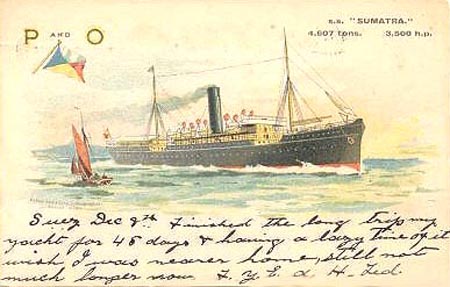 P AND O
s.s. "SUMATRA."
4,607 tons. 3,500 h.p.
Suez Dec 9th Finished the long trip my
yacht for 45 days & having a lazy time of it
wish I was nearer home, still not
much longer now. Ted